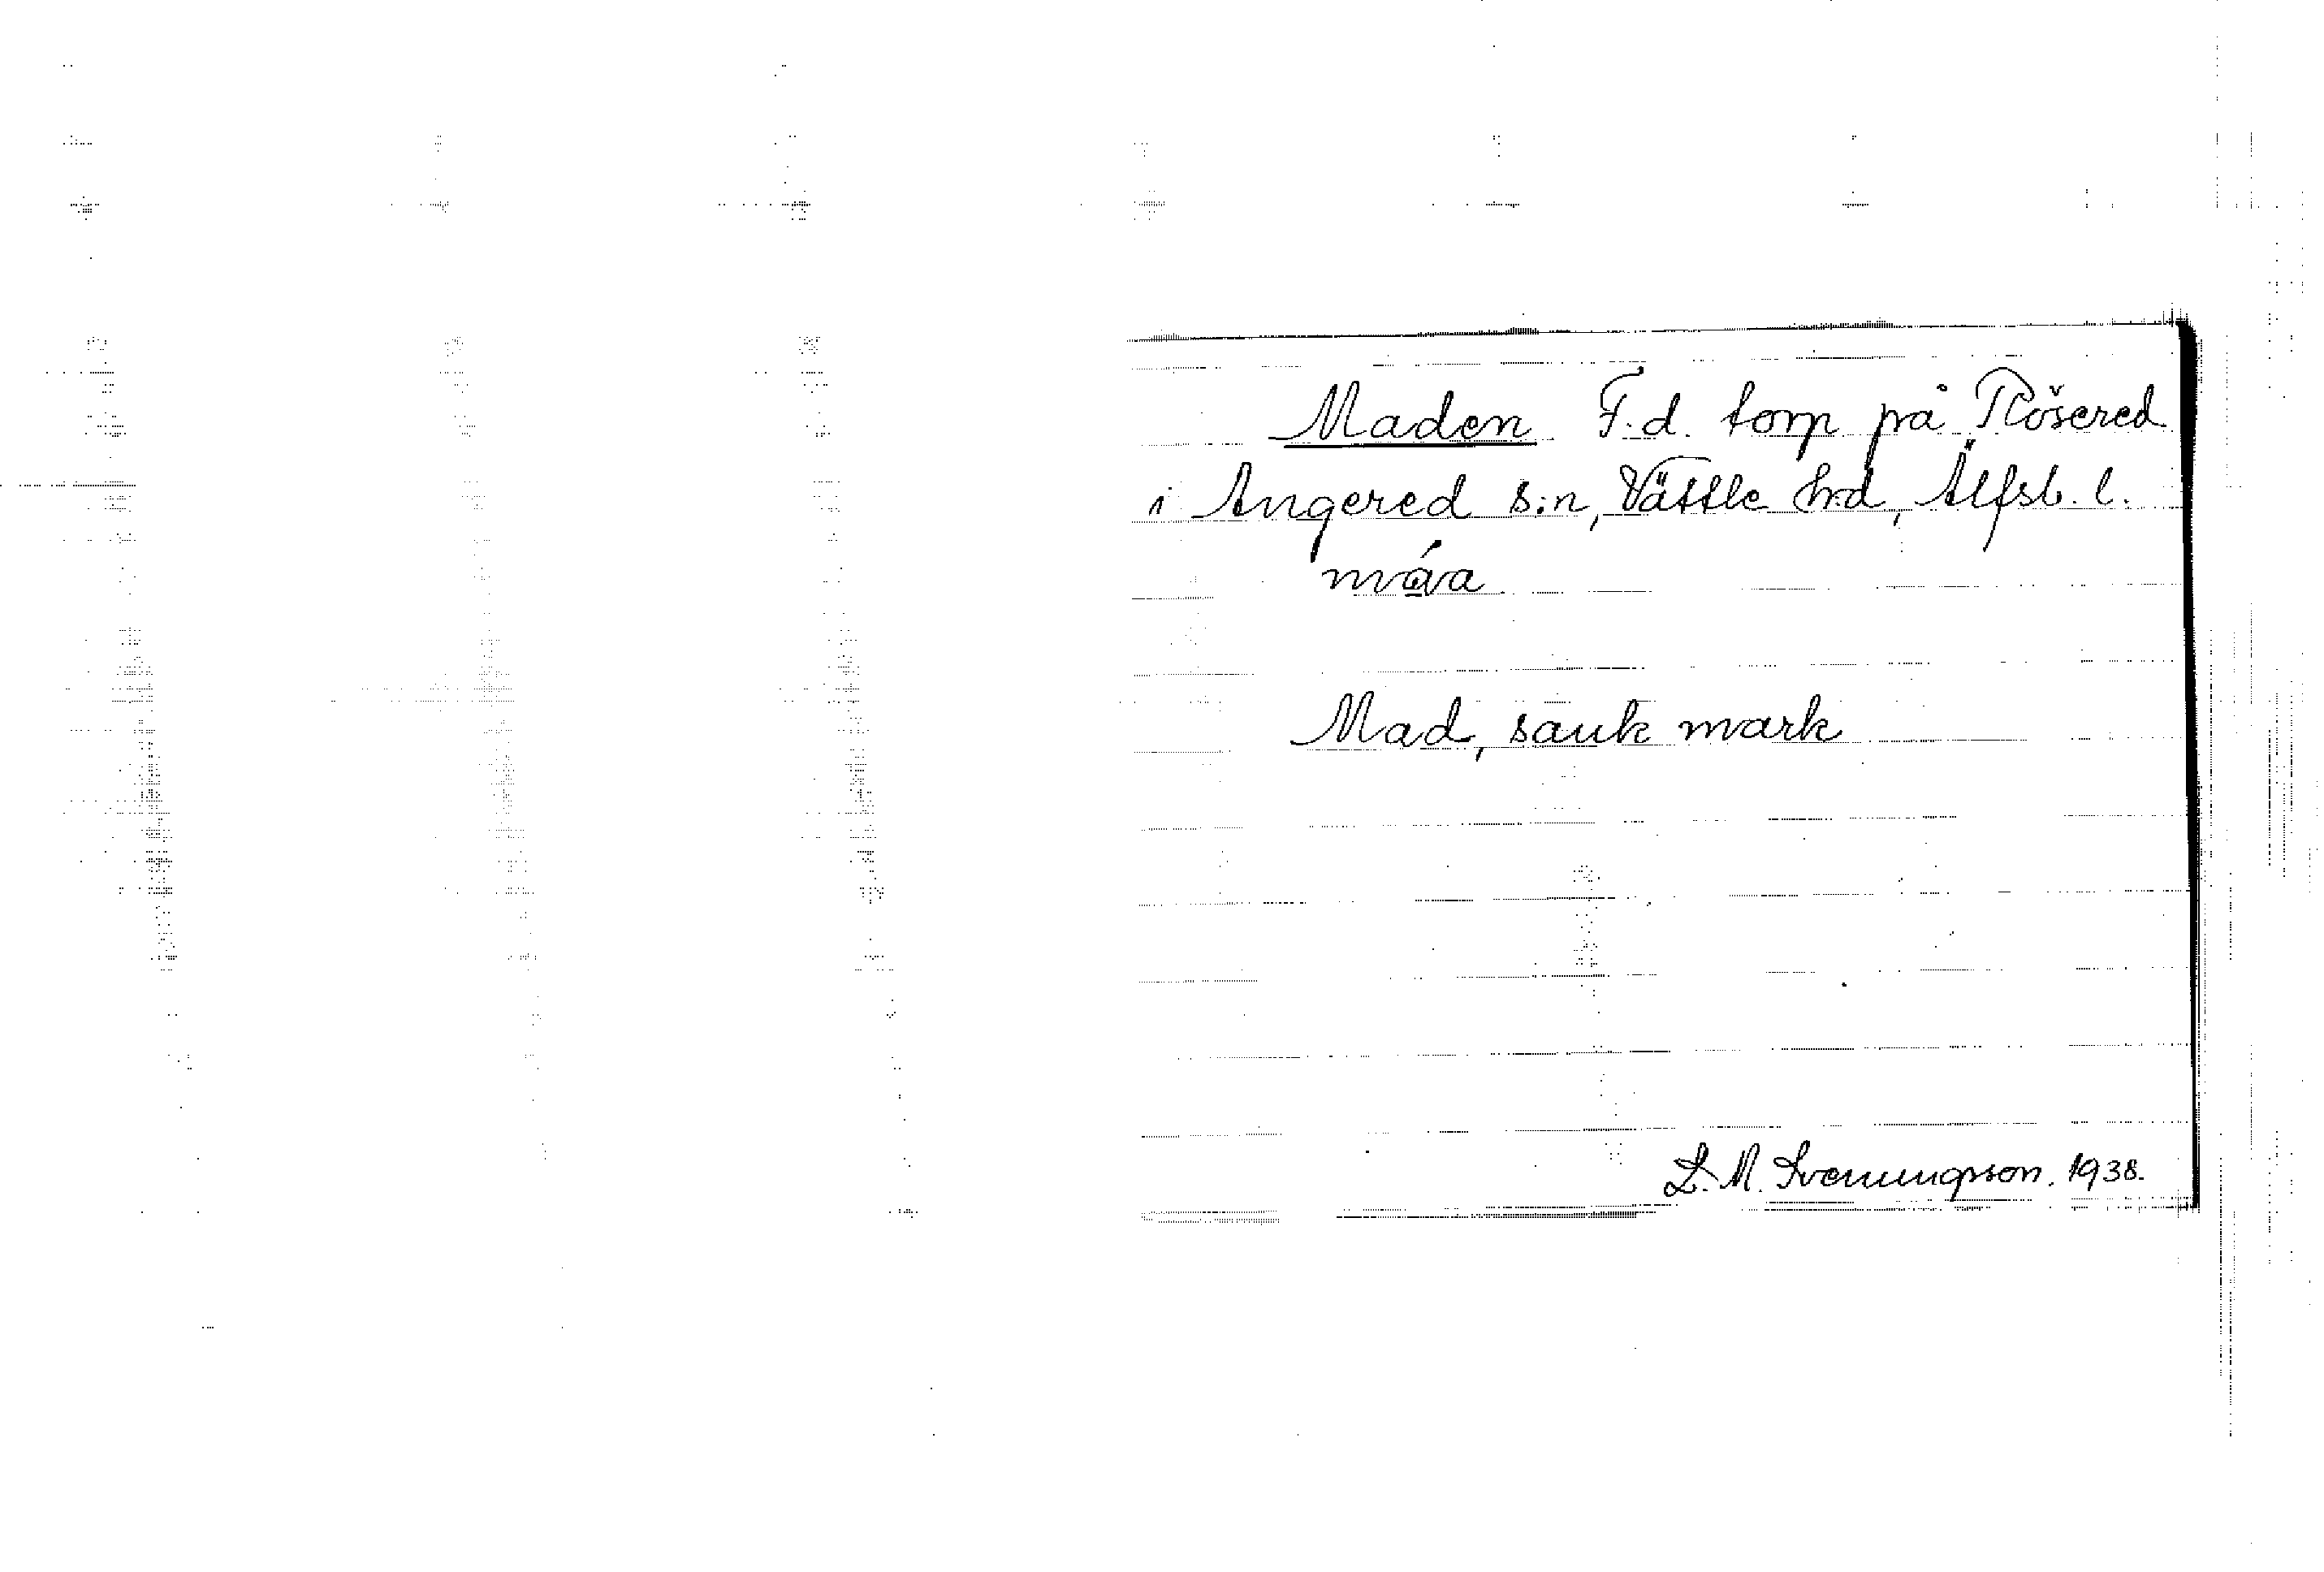 Maden F.d. torp på Rösered
i Angered s:n, Vättle hrd, Älfsb. l.
máva
Mad, sank mark
L. M. Svenungsson. 1938.